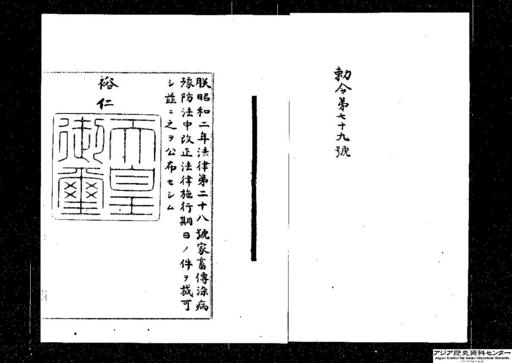 勅令第七十九號
朕昭和二年法律第二十八號家畜傳染病
豫防法中改正法律施行期日ノ件ヲ裁可
シ茲ニ之ヲ公布セシム
裕仁
天皇御璽
アジア歴史資料センター
Japan Center for Asian Historical Records